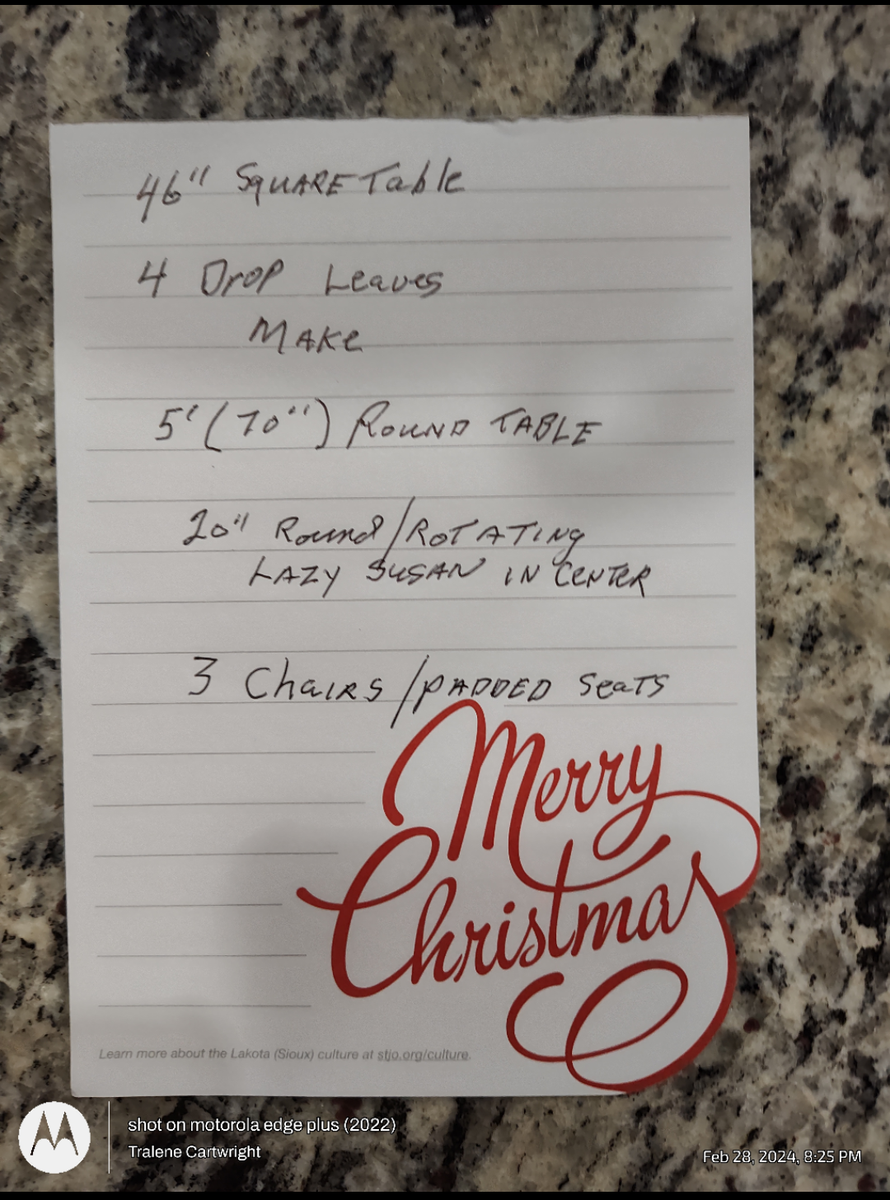 46" SQUARE Table
4 Drop Leaves
MAKe
5' (70") ROUND TABLE
20" Round/ROTATING
LAZY SUSAN IN CENTER
3 ChaIRS/PADDED SeaTS
Merry
Christmas
Learn more about the Lakota (Sioux) culture at stjo.org/culture.
shot on motorola edge plus (2022)
Tralene Cartwright
Feb 28, 2024, 8:25 PM